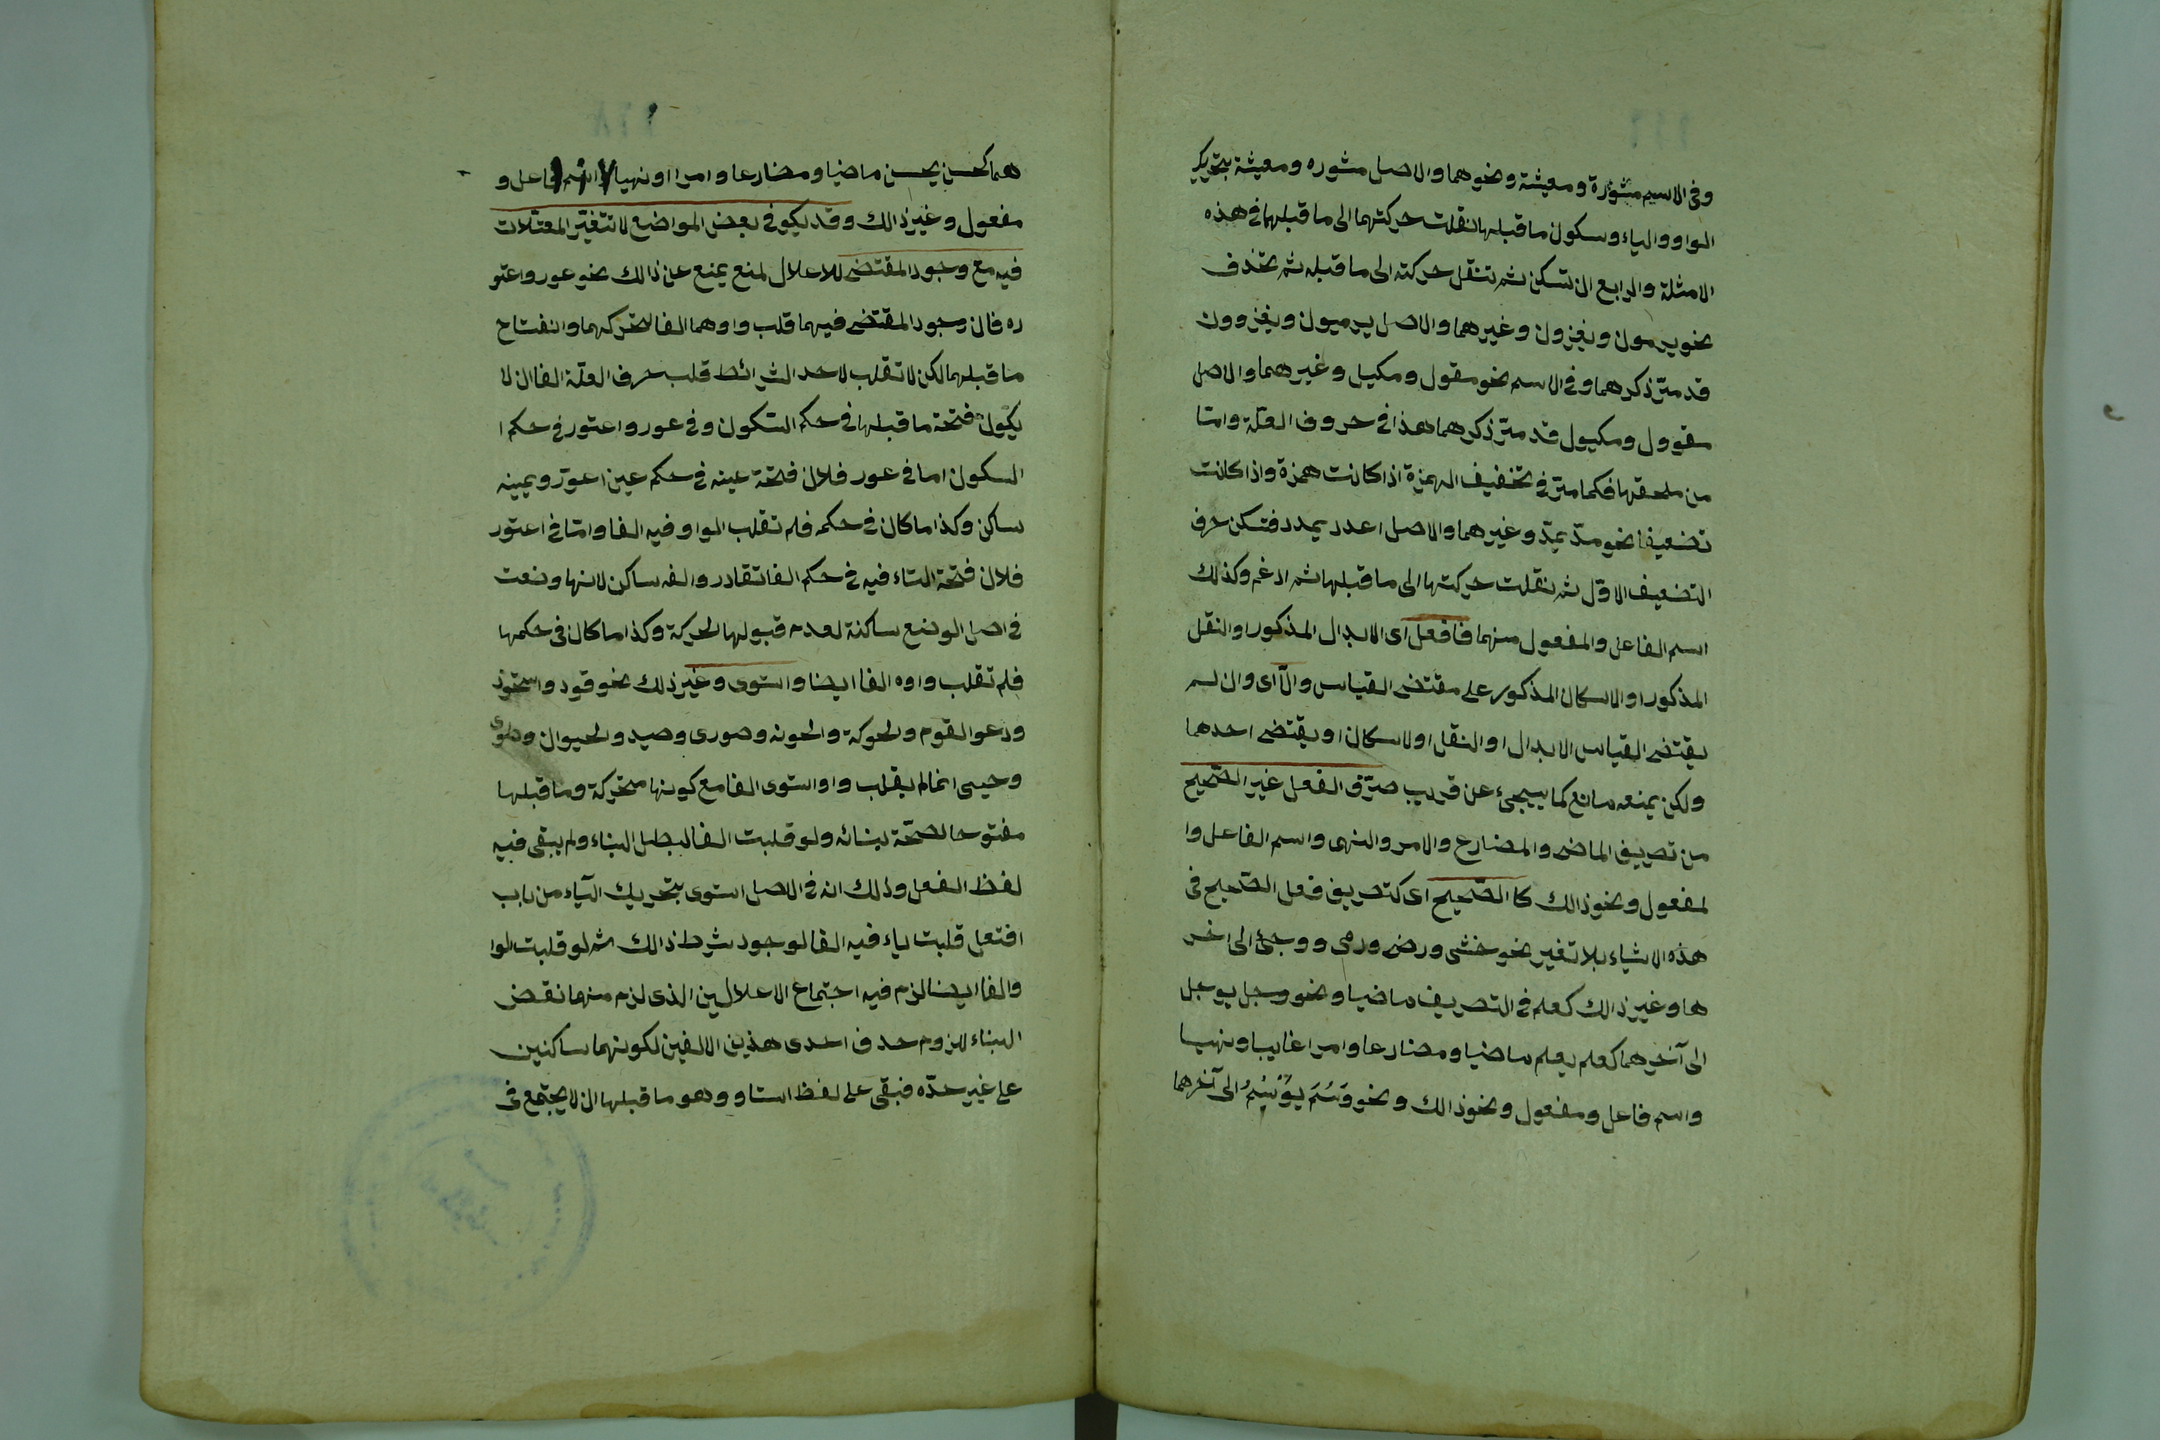 وفى الاسم مشورة ومعيشة ونحوهما والاصل مشوره ومعيشة بتحريك
الواو والياء وسكون ما قبلها نقلت حركتهما الى ما قبلهما فى هذه
الامثلة والرابع ان تسكن ثم تنقل حركته الى ما قبله ثم تحذف
نحو يرمون ويغزون وغيرهما والاصل يرميون ويغزوون
قد مرّ ذكرهما وفى الاسم نحو مقول ومكيل وغيرهما والاصل
مقوول ومكيول قد مرّ ذكرهما هذا فى حروف العلّة وامّا
من ملحقها فكما مرّ فى تخفيف الهمزة اذا كانت همزة واذا كانت
تضعيفا نحو مدّ يمدّ وغيرهما والاصل اعدد يمدد فتسكن حرف
التضعيف الاوّل ثم نقلت حركتها الى ما قبلها ثم ادغم وكذلك
اسم الفاعل والمفعول منهما فافعل اى الابدال المذكور او النقل
المذكور او الاسكان المذكور على مقتضى القياس والّا اى وان لم
يقتضى القياس الابدال او النقل او الاسكان او يقتضى احدهما
ولكن يمنعه مانع كما يسيجئ عن قريب صرّف الفعل غير الصّحيح
من تصريف الماضى والمضارع والامر والنهى واسم الفاعل وا
لمفعول ونحو ذالك كا الصّحيح اى كتصريف فعل الصّحيح فى
هذه الاشياء بلا تغير نحو خشى ورضى ورمى ووجئ الى اخر
ها وغير ذالك كعلم فى التصريف ماضيا ونحو وجل يوجل
الى آخرهما كعلم يعلم ماضيا ومضارعا وامرا غايبا ونهيا
واسم فاعل ومفعول ونحو ذالك ونحو وَسُمَ يَوْسُمُ الى آخرهما
هما كحسن يحسن ماضيا ومضارعا وامرا او نهيا لا اسم فاعل و
مفعول وغير ذالك وقد يكو فى بعض المواضع لا تتغيّر المعتلات
فيه مع وجود المقتضى للاعلال لمنع يمنع عن ذالك نحو عور واعتو
ره فان وجود المقتضى فيهما قلب واوهما الفا لتحركهما وانفتاح
ما قبلهما لكن لا تقلب لاحد الشرائط قلب حرف العلّة الفا ان لا
يكول فتحة ما قبلها فى حكم السّكون وفى عور واعتور فى حكم ا
السكون اما فى عور فلان فتحة عينه فى حكم عين اعورّ ويمينه
ساكن وكذا ما كان فى حكمه فلم تقلب الواو فيه الفا وامّا فى اعتور
فلان فتحة التاء فيه فى حكم الفا تقادر والفه ساكن لانها وضعت
فى اصل الوضع ساكنة لعدم قبولها لحركة وكذا ما كان فى حكمها
فلم تقلب واوه الفا ايضا واستوى وغير ذلك نحو قود واستحوذ
ودعو القوم ولحوكة والخونه وصورى وصيد ولحيوان وطوى
وحيى انما لم يقلب واو استوى الفا مع كونها متحركة وما قبلها
مفتوحا لصحّة بنائه ولو قلبت الفا لبطل البناء ولم يبقى فيه
لفظ الفعل وذلك انه فى الاصل استوى بتحريك اليّاء من باب
افتعل قلبت ياء فيه الفا لوجود شرط ذالك ثم لو قلبت الوا
و الفا ايضا لزم فيه اجتماع الاعلالين الذى لزم منهما نقض
البناء للزوم حذف احدى هذين الالفين لكونهما ساكنين
على غير حدّه فبقى على لفظ استاو وهو ما قبلها ان لا يجتمع فى